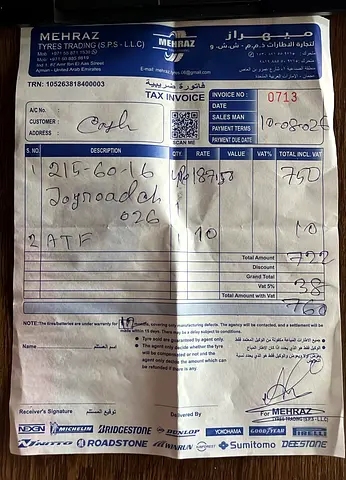 MEHRAZ
TYRES TRADING (S.P.S - L.L.C)
Ajman - United Arab Emirates
E-mail: mehraz.tyres.08@gmail.com
MEHRAZ
ميهراز
لتجارة الاطارات ذ.م.م - ش.ش.و
TRN: 105263818400003
فاتورة ضريبية
TAX INVOICE
INVOICE NO : 0713
DATE
SALES MAN
PAYMENT TERMS 10-08-026
PAYMENT DUE DATE
A/C No. :
CUSTOMER : Cash
ADDRESS :
SCAN ME
S. NO. DESCRIPTION QTY. RATE VALUE VAT% TOTAL INCL. VAT
1 215-60-16 187.50 750
Joyroad ch
026
2 ATF 1 10 10
Total Amount 722
Discount
Grand Total
Vat 5% 38
Total Amount with Vat 760
NOTE: The tires/batteries are under warranty for months, covering only manufacturing defects. The agency will be contacted, and a settlement will be made within 15 days. There may be a delay subject to stock.
Tyre sold are guaranteed by agent only.
The agent only decide whether the tyre will be compensated or not and the agent only decide the amount which can be refunded if there is any
Name اسم المستلم
Receiver's Signature توقيع المستلم
Delivered By
For MEHRAZ
TYRES TRADING (S.P.S - L.L.C)
NEXEN MICHELIN BRIDGESTONE DUNLOP YOKOHAMA GOODYEAR PIRELLI
NITTO ROADSTONE WINRUN Sumitomo DEESTONE